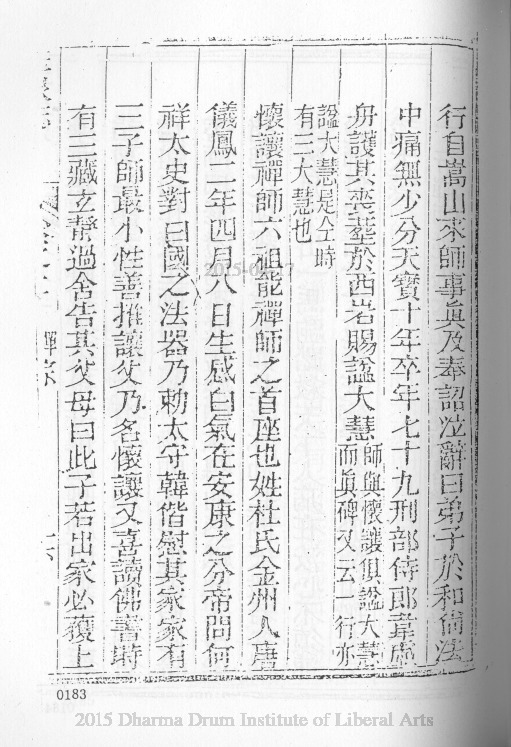 行自嵩山來師事真及奉詔泣辭曰弟子於和尚法
中痛無少分天寶十年卒年七十九刑部侍郎韋
舟護其喪塟於西岩賜諡大慧師與懷讓俱諡大慧而真碑又云一行亦
諡大慧是仝時有三大慧也
懷讓禪師六祖能禪師之首座也姓杜氏金州人唐
儀鳳二年四月八日生感白氣在安康之分帝問何
祥太史對曰國之法器乃勅太守韓偕慰其家家有
三子師最小性善推讓父乃名懷讓又喜讀佛書時
有三藏玄靜過舍告其父母曰此子若出家必獲上
禪宗
2015-04-17
0183
2015 Dharma Drum Institute of Liberal Arts